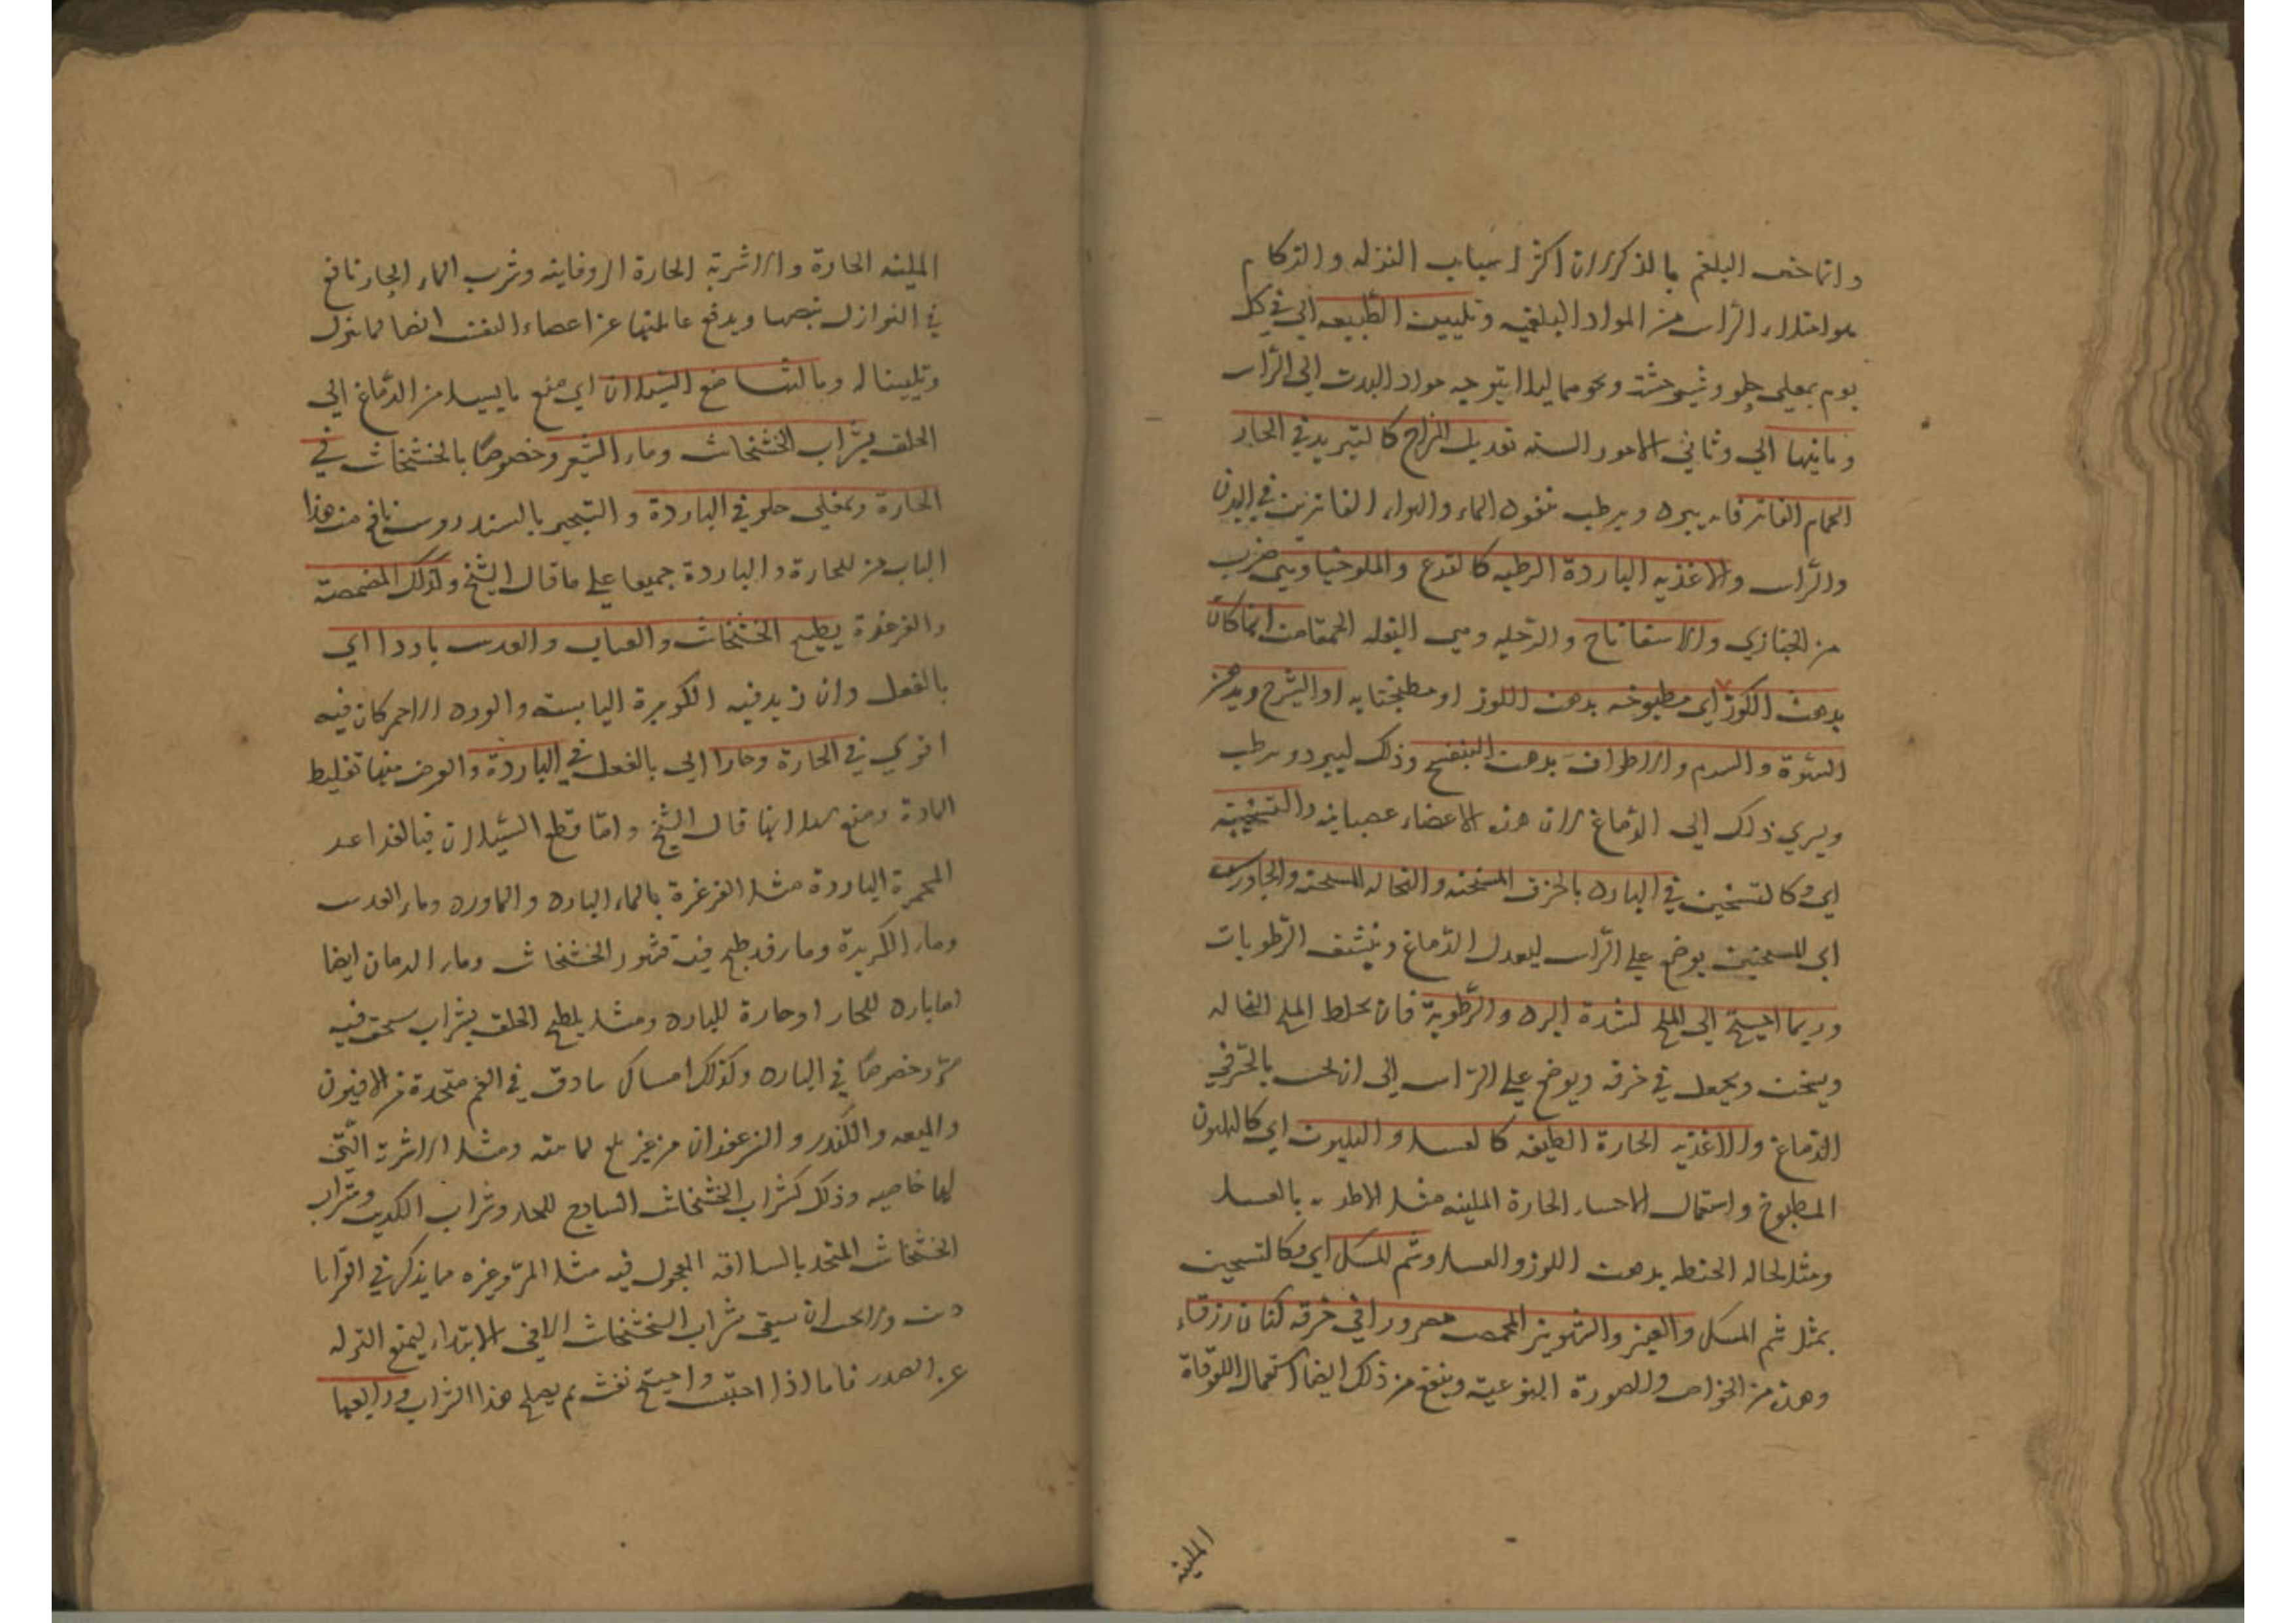 وانما خص البلغم بالذكر لان اكثر اسباب النزله والزكام
هو امتلاء الراس من المواد البلغميه وتليين الطبيعه اي في كل
يوم بمغلي حلو وشيرخشت ونحوهما ليلا يتوجه مواد البدن الى الراس
وثانيها اي وثاني الامور السته تعديل المزاج كالتبريد في الحار
الحمام الفاتر فانه يبرد ويرطب بنفوذ الماء والهواء الفاترين في البدن
والراس والاغذيه الباردة الرطبه كالقرع والملوخيا وهي ضرب
من الخبازي والاسفاناخ والرجله وهي البقله الحمقا من ايما كان
بدهن اللوز اي مطبوخه بدهن اللوز او مطجنا به او الشيرج ويدهن
السرة والسرم والاطراف بدهن البنفسج وذلك ليبرد ويرطب
ويسري ذلك الى الدماغ لان هذه الاعضاء عصبانيه والتسخين
اي وكالتسخين في البارد بالخرق المسخنه والنخاله المسخنه والجاورس
اي المسخن يوضع على الراس ليعدل الدماغ وينشف الرطوبات
وربما احتيج الى الملح لشدة البرد والرطوبة فان يخلط الملح النخاله
ويسخن ويجعل في خرقه ويوضع على الراس الى ان يحس بالحر في
الدماغ والاغذيه الحارة الطيفه كالعسل والهليون اي كالهليون
المطبوخ واستعمال الاحساء الحارة الملينه مثل الاطريه بالعسل
ومثل نخاله الحنطه بدهن اللوز والعسل وشم المسك اي وكالتسخين
بمثل شم المسك والعنبر والشونيز المحمص مصرورا في خرقه كتان زرقاء
وهذه من الخواص والصورة النوعيه وينفع من ذلك ايضا استعمال اللعوقاة
الملينه
الملينه الحارة والاشربة الحارة الزوفاييه وشرب الماء الحار نافع
في النوازل ينضجها ويدفع عاديتها عن اعضاء النفس ايضا لما ينزل
وتليينا له وثالثها منع السيلان اي منع ما يسيل من الدماغ الى
الحلق بشراب الخشخاش وماء الشعير وخصوصا بالخشخاش في
الحارة وبمغلي حلو في الباردة والتبخير بالسندروس نافع من هذا
الباب من للحارة والباردة جميعا على ما قال الشيخ وكذلك المضمضة
والغرغرة بطبيخ الخشخاش والعناب والعدس باردا اي
بالفعل وان زيد فيه الكزبرة اليابسه والورد الاحمر كان فيه
اقوي في الحارة وحارا اي بالفعل في الباردة والغرض منها تغليظ
المادة ومنع سيلانها قال الشيخ واما قطع السيلان فبالغراغر
المجمدة الباردة مثل الغرغرة بالماء البارد والماورد وماء العدس
وماء الكزبرة وماء قد طبخ فيه قشور الخشخاش وماء الرمان ايضا
اما بارد للحار او حارة للبارد ومثل يلطخ الحلق بشراب سحق فيه
مر وخصوصا في البارد وكذلك امساك بنادق في الفم متخذة من الافيون
والميعه والكندر والزعفران من غير بلع لما منه ومثل الاشربة التي
لها خاصيه وذلك كشراب الخشخاش الساذج للحار وشراب الكدب وشراب
الخشخاش المتخذ بالسلاقه المجعول فيه مثل المر وغيره مما يذكر في اقرابا
دين والاحسن ان يسقى شراب الخشخاش الا في الابتداء ليمنع النزله
عن الصدر فاما اذا احتبست واحتيج نفث لم يصلح هذا الشراب ورابعها